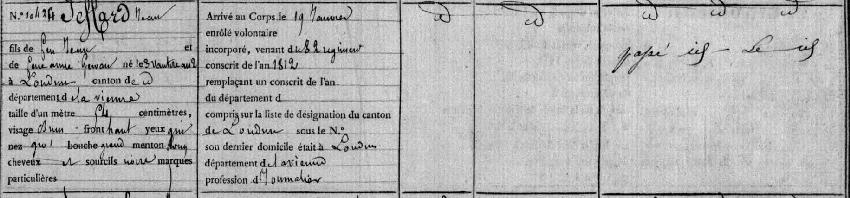 N.º 10424 Jeffard Jean
fils de Jean
et
de Jeanne né le 3 Vantose an 2
à Loudun canton de id
département d la vienne
taille d'un mètre 54 centimètres,
visage brun front haut yeux gris
nez gros bouche grand menton long
cheveux et sourcils noirs marques
particulières
Arrivé au Corps le 19 Janvier
enrôlé volontaire
incorporé, venant du 82 regiment
conscrit de l'an 1812
remplaçant un conscrit de l'an
du département d
compris sur la liste de désignation du canton
de Loudun sous le N.º
son dernier domicile était à Loudun
département d la vienne
profession d Journalier
id
id
id id id
passé id le id